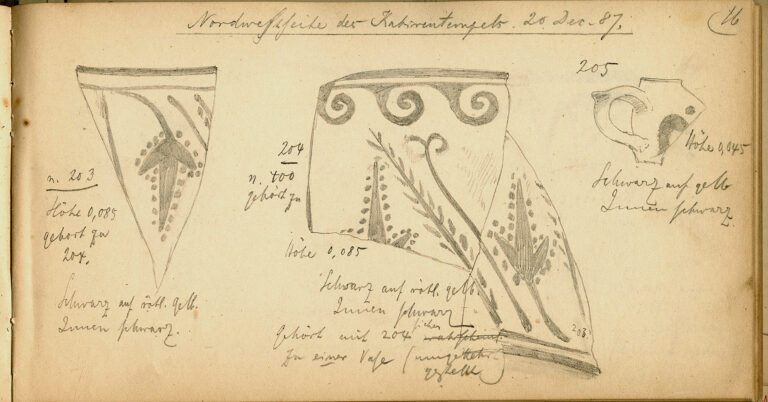 Nordwestseite des Kabirentempels. 20 Dec. 87.
16
n. 203
Höhe 0,085
gehört zu
204.
Schwarz auf rötl. gelb.
Innen schwarz.
204
n. 100
gehört zu
Höhe 0,085
Schwarz auf rötl. gelb.
Innen schwarz
Gehört mit 204 sicher
zu einer Vase (umgekehrt
gestellt)
203
205
Höhe 0,045
Schwarz auf gelb
Innen schwarz.